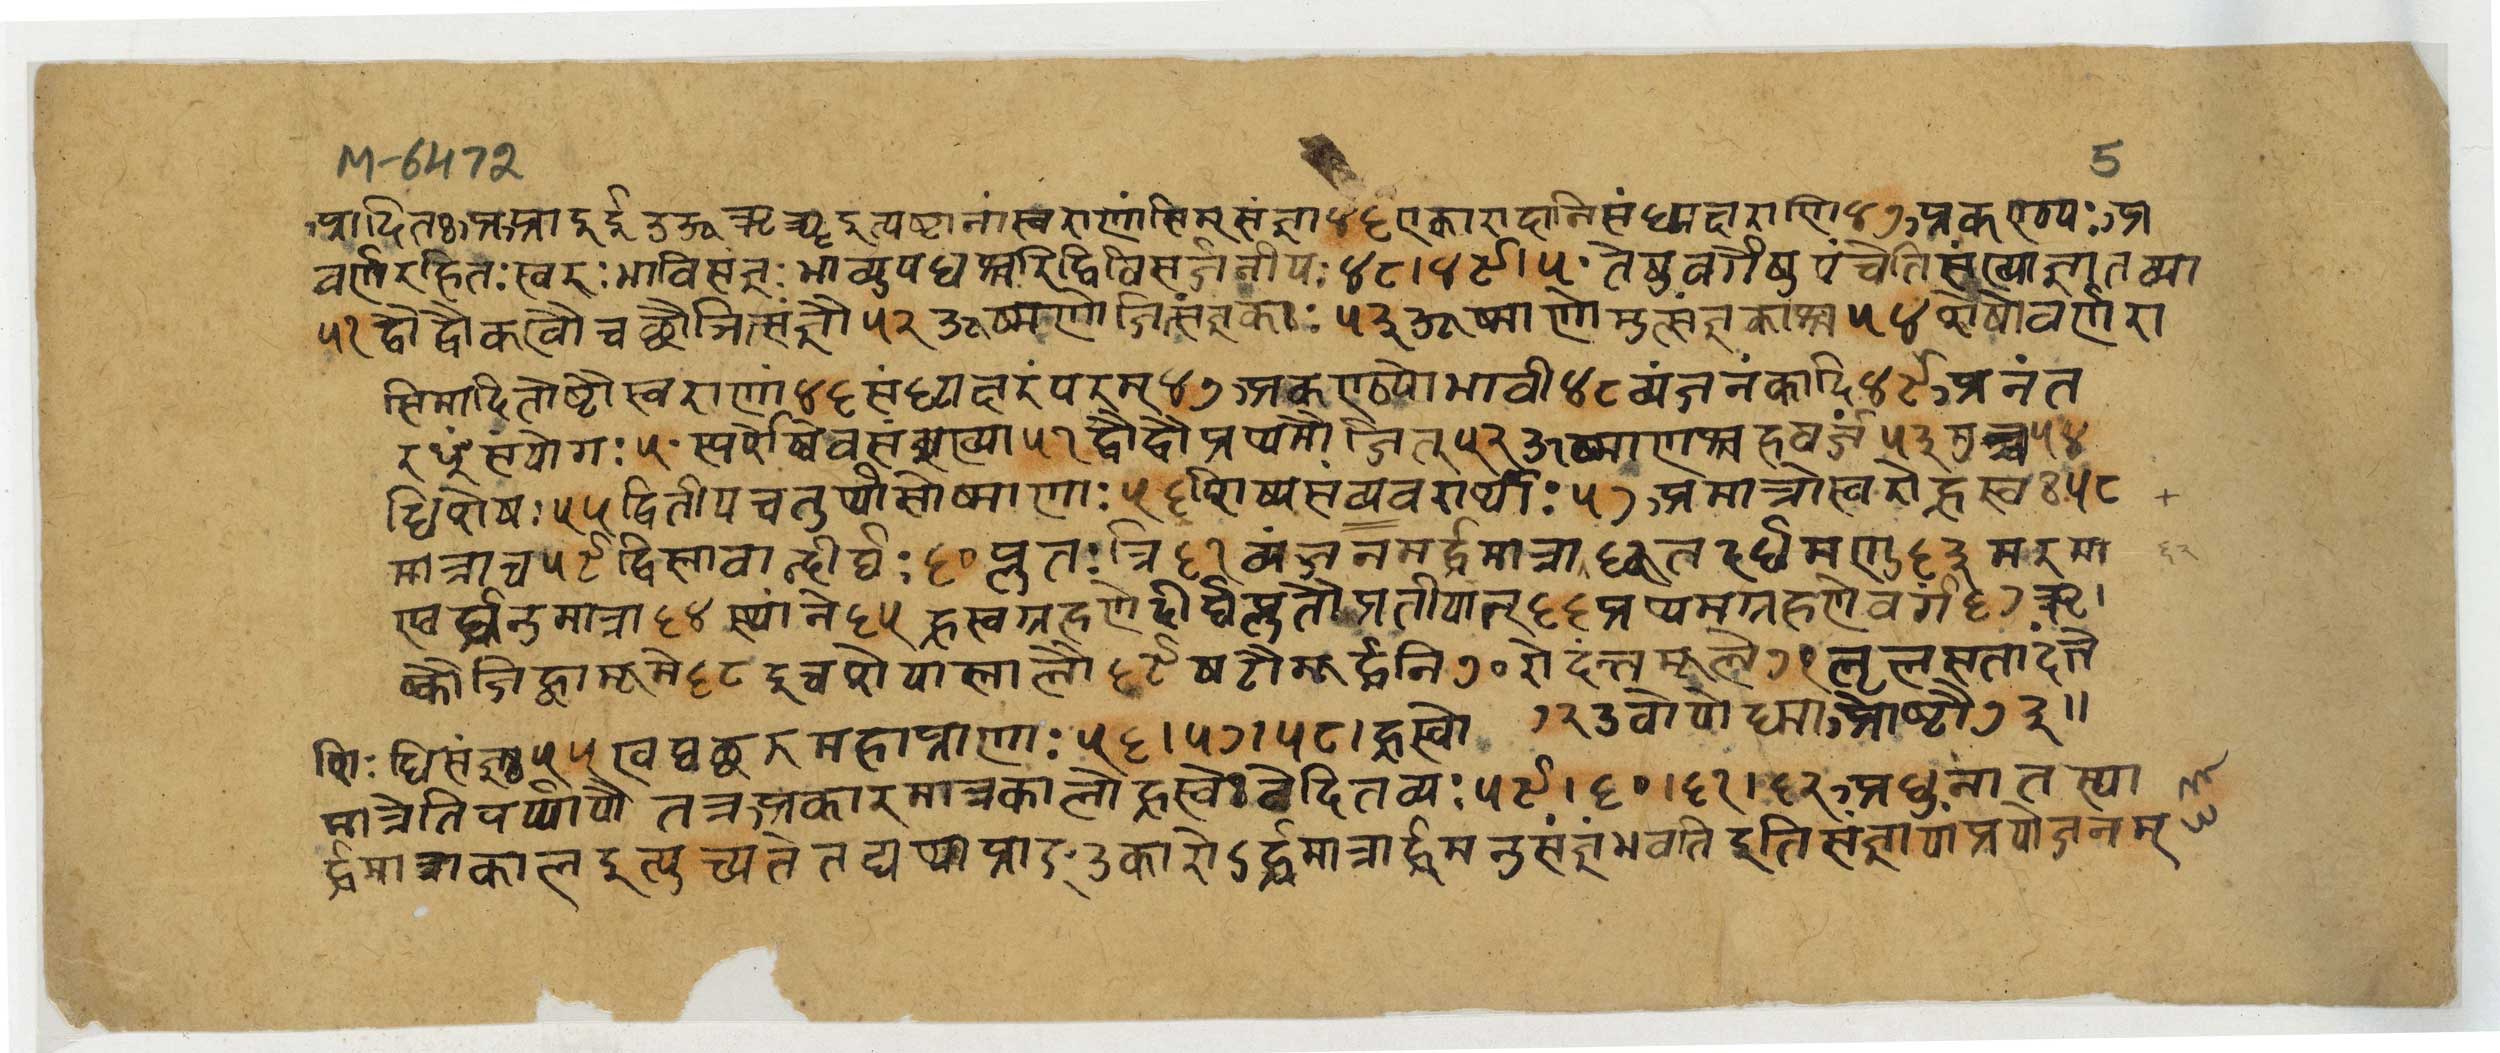 M-6472
5
आदितः अ आ इ ई उ ऊ ऋ ॠ इत्यष्टानां स्वराणां सिम् संज्ञा ४६ एकारादीनि संध्यक्षराणि ४७ अकण्ठ्यः अ
वर्णरहितः स्वरः भाविसंज्ञः भाव्युपधश्च रिद्विविसर्जनीयः ४८।४९।५॰ तेषु वर्गेषु पंचेति संख्या ज्ञातव्या
५१ द्वौ द्वौ कखौ चछौ जित्संज्ञौ ५२ ऊष्माणो जित्संज्ञकाः ५३ ऊष्माणो मुत्संज्ञकाश्च ५४ शेषो वर्णरा
सिमादितोष्टौ स्वराणां ४६ संध्यक्षरं परम् ४७ अकण्ठ्यो भावी ४८ व्यंजनं कादि ४९ अनंत
रꣳ संयोगः ५॰ स्पर्शेष्वेव संख्या ५१ द्वौ द्वौ प्रथमौ जित् ५२ ऊष्माणश्च हवर्जं ५३ मुच्च ५४
धिशेषः ५५ द्वितीयचतुर्थाः सोष्माणः ५६ शिष्यसंव्यवरार्थाः ५७ अमात्रास्वरो ह्रस्वः ५८ +
मात्रा च ५९ द्विस्तावान्दीर्घः ६० प्लुतः त्रि ६१ व्यंजनमर्द्धमात्रा ६२ तदर्धमणु ६३ परमा
ण्वर्द्धाणुमात्रा ६४ स्थाने ६५ ह्रस्वग्रहणे दीर्घप्लुतौ प्रतीयात् ६६ प्रथमग्रहणे वर्गं ६७ ऋ
ᳲक्कौ जिह्वामूले ६८ इचशेयास्तालौ ६९ षटौ मूर्द्धनि ७० रो दंतमूले ७१ लृलसिता दंते
७२ उवोपोपध्मा ओष्ठौ ७३॥
शिः धिसंज्ञः ५५ खघछझ महाप्राणाः ५६।५७।५८। ह्रस्वो
मात्रेति पर्यायौ तत्र अकारमात्रकालो ह्रस्वः वेदितव्यः ५९।६०।६१।६२ अधुना तस्या
र्द्धमात्राकाल इत्युच्यते तद्यथा प्राङ् उकारोऽर्द्धमात्रार्द्धमणुसंज्ञं भवति इति संज्ञायाः प्रयोजनम्